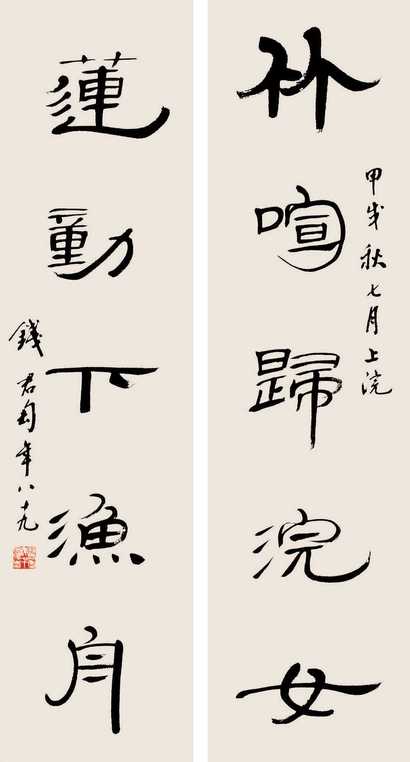 竹喧歸浣女
甲戌秋七月上浣
蓮動下漁舟
錢君匋年八十九